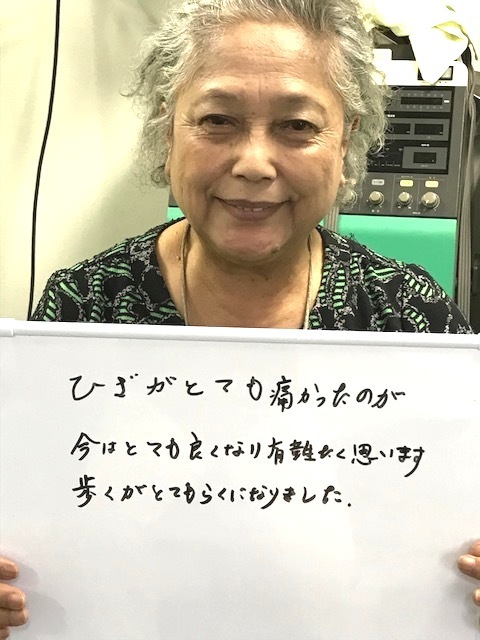 ひざがとても痛かったのが
今はとても良くなり有難たく思います
歩くがとてもらくになりました.